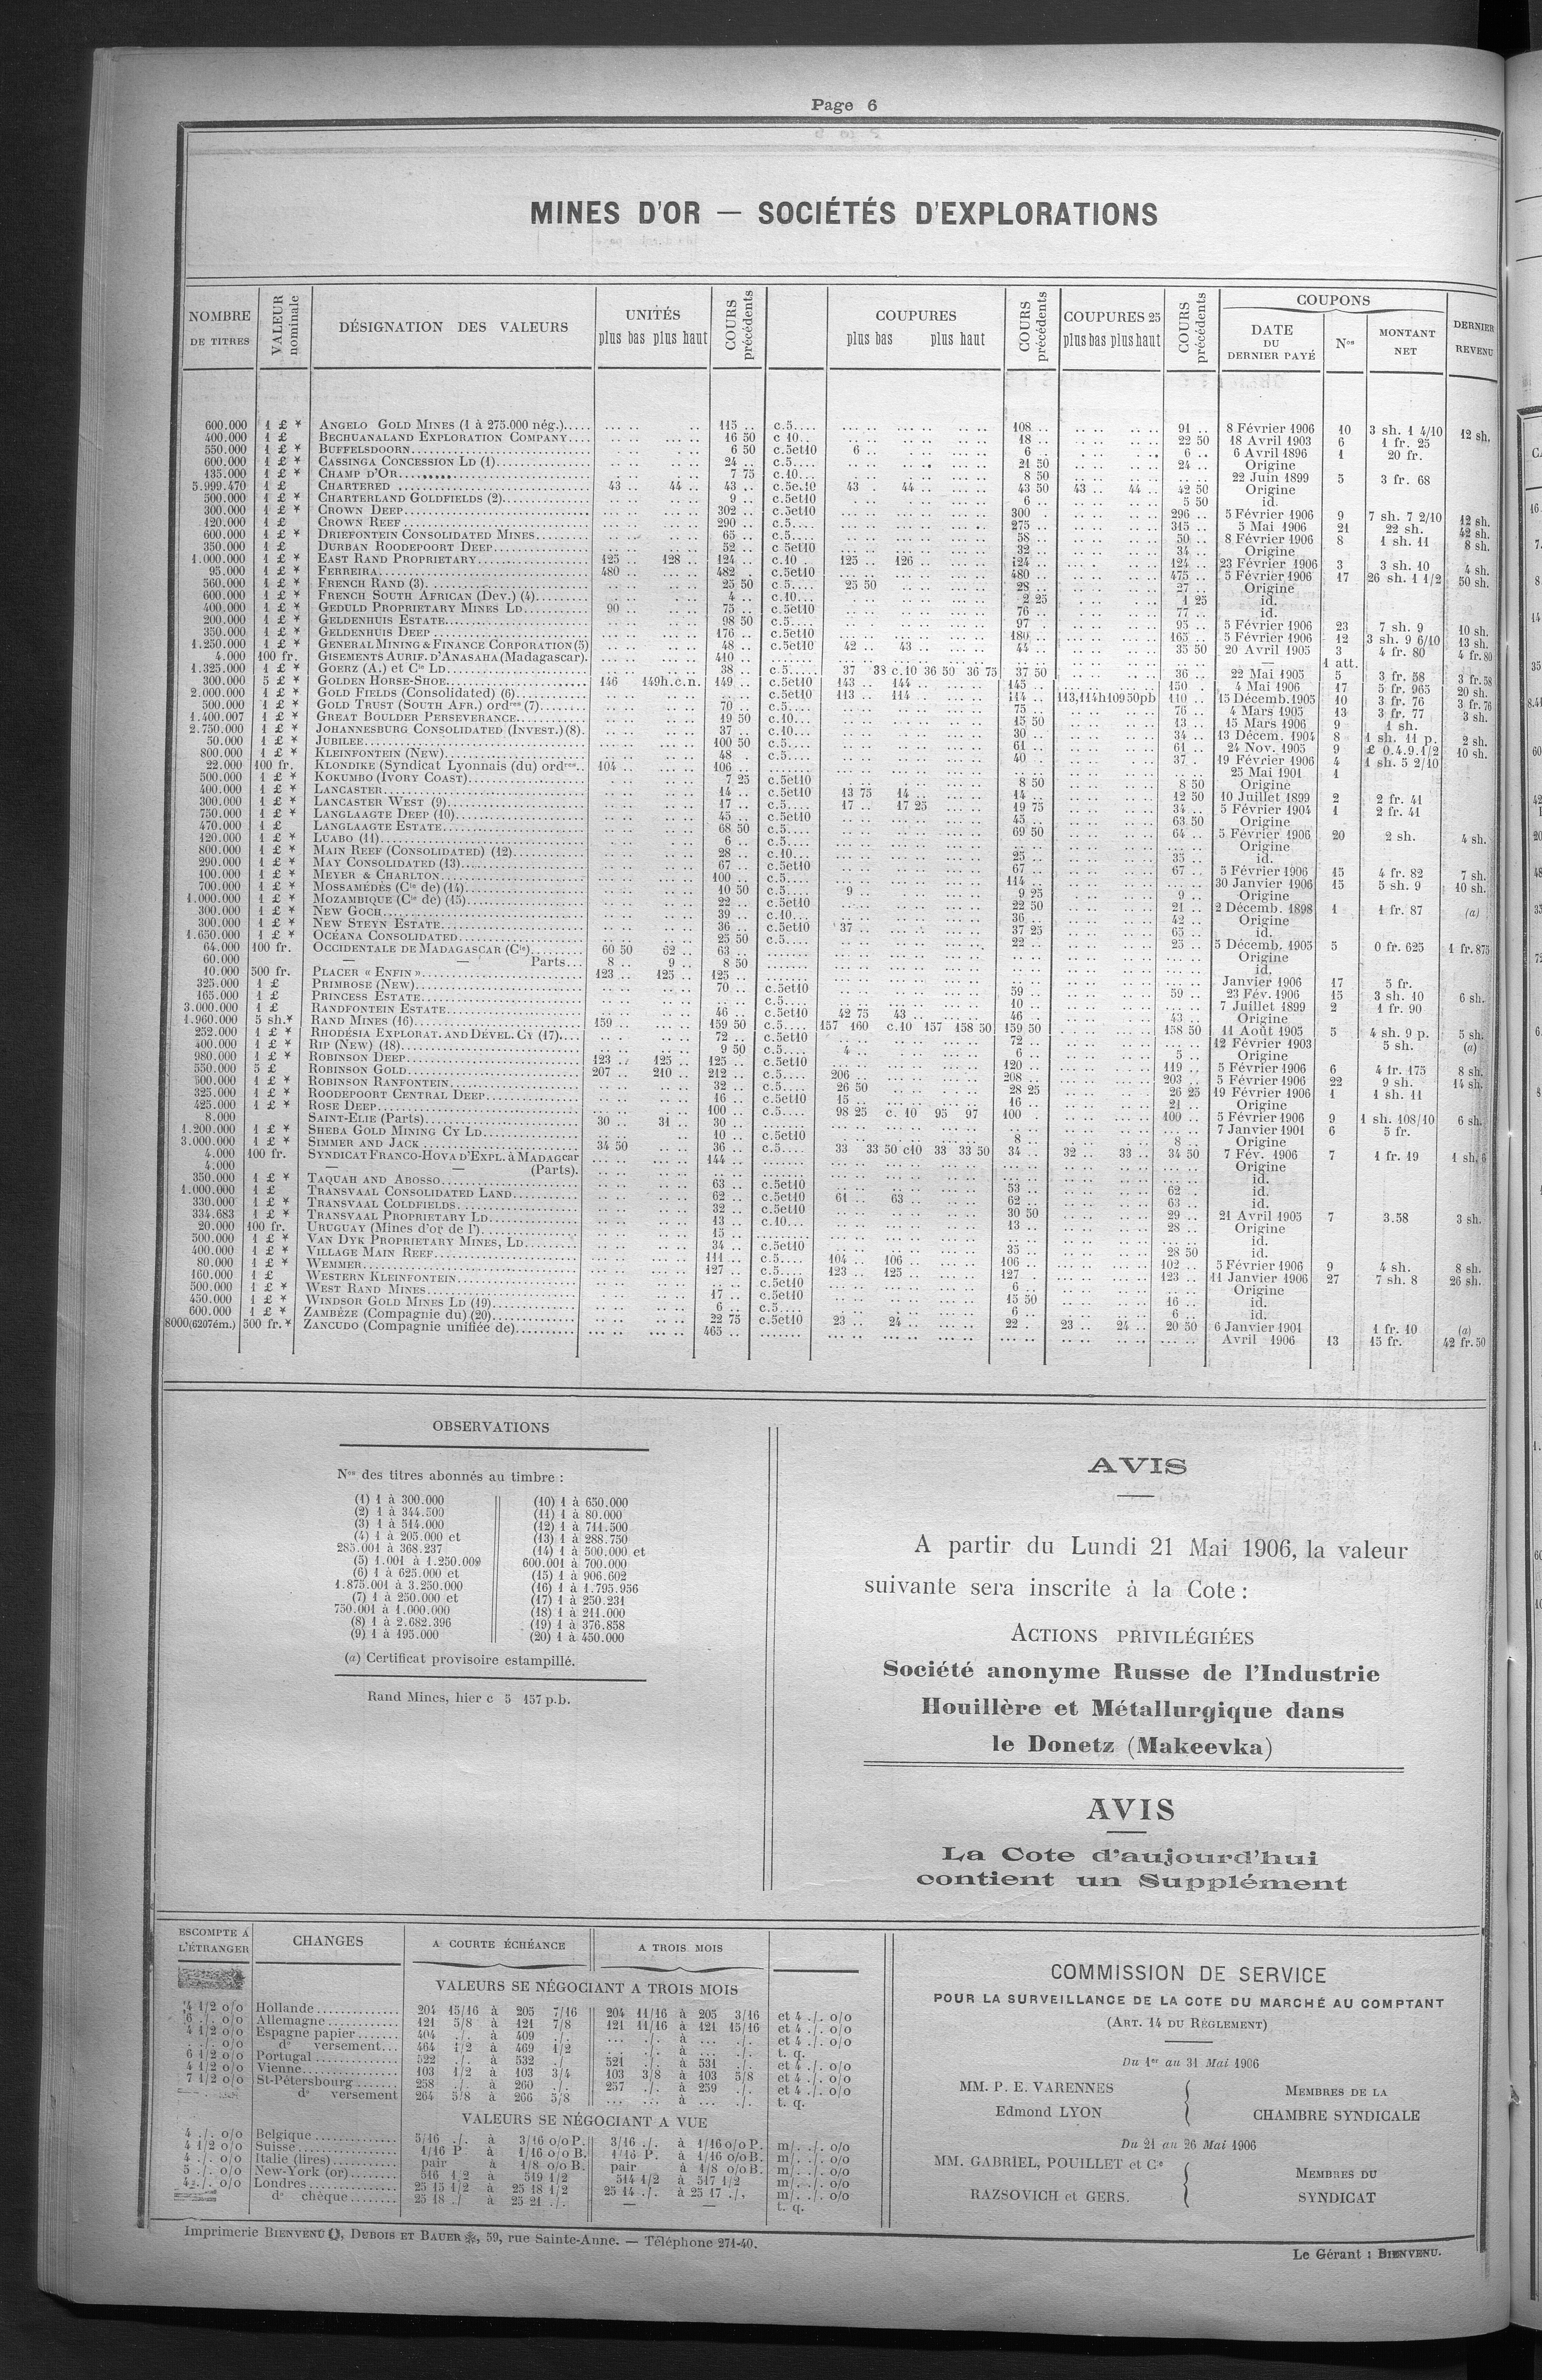 Page 6
MINES D'OR — SOCIÉTÉS D'EXPLORATIONS
NOMBRE DE TITRES | VALEUR nominale | DÉSIGNATION DES VALEURS | UNITÉS plus bas plus haut | COURS précédents | COUPURES plus bas plus haut | COURS précédents | COUPURES 25 plus bas plus haut | COURS précédents | COUPONS DATE DU DERNIER PAYÉ | Nos | MONTANT NET | DERNIER REVENU
600.000 1 £ * ANGELO GOLD MINES (1 à 275.000 nég.) 115 .. c.5.... 108 .. 91 .. 8 Février 1906 10 3 sh. 1 4/10 12 sh.
400.000 1 £ BECHUANALAND EXPLORATION COMPANY 16 50 c 10.. 18 .. 22 50 18 Avril 1903 6 1 fr. 25
550.000 1 £ * BUFFELSDOORN 6 50 c.5et10 6 .. 6 .. 6 .. 6 Avril 1896 1 20 fr.
600.000 1 £ * CASSINGA CONCESSION LD (1) 24 .. c.5.... 21 50 24 .. Origine
135.000 1 £ * CHAMP D'OR 7 75 c.10... 8 50 22 Juin 1899 5 3 fr. 68
5.999.470 1 £ CHARTERED 43 .. 44 .. 43 .. c.5e.10 43 .. 44 .. 43 50 43 .. 44 .. 42 50 Origine
500.000 1 £ * CHARTERLAND GOLDFIELDS (2) 9 .. c.5et10 6 .. 5 50 id.
300.000 1 £ * CROWN DEEP 302 .. c.5et10 300 296 .. 5 Février 1906 9 7 sh. 7 2/10 12 sh.
120.000 1 £ CROWN REEF 290 .. c.5.... 275 .. 315 .. 5 Mai 1906 21 22 sh. 42 sh.
600.000 1 £ * DRIEFONTEIN CONSOLIDATED MINES 65 .. c.5.... 58 .. 50 .. 8 Février 1906 8 1 sh. 11 8 sh.
350.000 1 £ DURBAN ROODEPOORT DEEP 52 .. c 5et10 32 .. 34 .. Origine
1.000.000 1 £ * EAST RAND PROPRIETARY 125 .. 128 .. 124 .. c.10 . 125 .. 126 .. 124 .. 124 .. 23 Février 1906 3 3 sh. 10 4 sh.
95.000 1 £ * FERREIRA 480 .. 482 .. c.5et10 480 .. 475 .. 5 Février 1906 17 26 sh. 1 1/2 50 sh.
560.000 1 £ * FRENCH RAND (3) 25 50 c.5.... 25 50 28 .. 27 .. Origine
600.000 1 £ * FRENCH SOUTH AFRICAN (Dev.) (4) 4 .. c.10... 2 25 1 25 id.
400.000 1 £ * GEDULD PROPRIETARY MINES LD 90 .. 75 .. c.5et10 76 .. 77 .. id.
200.000 1 £ * GELDENHUIS ESTATE 98 50 c.5.... 97 95 .. 5 Février 1906 23 7 sh. 9 10 sh.
350.000 1 £ * GELDENHUIS DEEP 176 .. c.5et10 180 .. 165 .. 5 Février 1906 12 3 sh. 9 6/10 13 sh.
1.250.000 1 £ * GENERAL MINING & FINANCE CORPORATION (5) 48 .. c.5et10 42 .. 43 .. 44 .. 35 50 20 Avril 1905 3 4 fr. 80 4 fr.80
4.000 100 fr. GISEMENTS AURIF. D'ANASAHA (Madagascar). 410 .. — 1 att.
1.325.000 1 £ * GOERZ (A.) et Cie LD 38 .. c.5..... 37 38 c.10 36 50 36 75 37 50 36 .. 22 Mai 1905 5 3 fr. 58 3 fr.58
300.000 5 £ * GOLDEN HORSE-SHOE 146 149h.c.n. 149 .. c.5et10 143 .. 144 .. 145 .. 150 . 4 Mai 1906 17 5 fr. 965 20 sh.
2.000.000 1 £ * GOLD FIELDS (Consolidated) (6) c.5et10 113 .. 114 114 .. 113,114h10950pb 110 .. 15 Décemb.1905 10 3 fr. 76 3 fr.76
500.000 1 £ * GOLD TRUST (SOUTH AFR.) ordres (7) 70 .. c.5.... 75 .. 76 .. 4 Mars 1905 13 3 fr. 77 3 sh.
1.400.007 1 £ * GREAT BOULDER PERSEVERANCE 19 50 c.10... 15 50 13 .. 15 Mars 1906 9 1 sh.
2.750.000 1 £ * JOHANNESBURG CONSOLIDATED (INVEST.) (8). 37 .. c.10... 30 .. 34 .. 13 Décem. 1904 8 1 sh. 11 p. 2 sh.
50.000 1 £ * JUBILEE 100 50 c.5.... 61 .. 61 .. 24 Nov. 1905 9 £ 0.4.9.1/2 10 sh.
800.000 1 £ * KLEINFONTEIN (NEW) 48 . c.5.... 40 .. 37 .. 19 Février 1906 4 1 sh. 5 2/10
22.000 100 fr. KLONDIKE (Syndicat Lyonnais (du) ordres.. 104 .. 106 .. 25 Mai 1901 1
500.000 1 £ * KOKUMBO (IVORY COAST) 7 25 c.5et10 8 50 8 50 Origine
400.000 1 £ * LANCASTER 14 .. c.5et10 13 75 14 .. 14 .. 12 50 10 Juillet 1899 2 2 fr. 41
300.000 1 £ * LANCASTER WEST (9) 17 .. c.5.... 17 .. 17 25 19 75 34 .. 5 Février 1904 1 2 fr. 41
750.000 1 £ * LANGLAAGTE DEEP (10) 45 .. c.5et10 45 .. 63 50 Origine
470.000 1 £ LANGLAAGTE ESTATE 68 50 c.5.... 69 50 64 .. 5 Février 1906 20 2 sh. 4 sh.
120.000 1 £ * LUABO (11) 6 .. c.5.... Origine
800.000 1 £ * MAIN REEF (CONSOLIDATED) (12) 28 .. c.10... 25 .. 35 .. id.
290.000 1 £ * MAY CONSOLIDATED (13) 67 .. c.5et10 67 .. 67 .. 5 Février 1906 15 4 fr. 82 7 sh.
100.000 1 £ * MEYER & CHARLTON 100 .. c.5.... 114 .. 30 Janvier 1906 15 5 sh. 9 10 sh.
700.000 1 £ * MOSSAMÉDÈS (Cie de) (14) 10 50 c.5.... 9 .. 9 25 9 .. Origine
1.000.000 1 £ * MOZAMBIQUE (Cie de) (15) 22 .. c.5et10 22 50 21 .. 2 Décemb. 1898 1 1 fr. 87 (a)
300.000 1 £ * NEW GOCH 39 .. c.10... 36 .. 42 .. Origine
300.000 1 £ * NEW STEYN ESTATE 36 .. c.5et10 37 .. 37 25 65 .. id.
1.650.000 1 £ * OCÉANA CONSOLIDATED 25 50 c.5.... 22 .. 25 .. 5 Décemb. 1905 5 0 fr. 625 1 fr.875
64.000 100 fr. OCCIDENTALE DE MADAGASCAR (Cie) 60 50 62 .. 63 .. Origine
60.000 — — Parts... 8 .. 9 .. 8 50 id.
10.000 500 fr. PLACER « ENFIN » 123 .. 125 .. 125 .. Janvier 1906 17 5 fr.
325.000 1 £ PRIMROSE (NEW) 70 .. c.5et10 59 .. 59 .. 23 Fév. 1906 15 3 sh. 10 6 sh.
165.000 1 £ PRINCESS ESTATE c.5.... 10 .. 7 Juillet 1899 2 1 fr. 90
3.000.000 1 £ RANDFONTEIN ESTATE 46 .. c.5et10 42 75 43 .. 46 .. 43 .. Origine
1.960.000 5 sh.* RAND MINES (16) 159 .. 159 50 c.5.... 157 160 c.10 157 158 50 159 50 158 50 11 Août 1905 5 4 sh. 9 p. 5 sh.
252.000 1 £ * RHODÉSIA EXPLORAT. AND DÉVEL. CY (17) 72 .. c.5et10 72 .. 12 Février 1903 5 sh. (a)
400.000 1 £ * RIP (NEW) (18) 9 50 c.5.... 4 .. 6 .. 5 .. Origine
980.000 1 £ * ROBINSON DEEP 123 .. 125 .. 125 .. c.5et10 120 .. 119 .. 5 Février 1906 6 4 fr. 175 8 sh.
550.000 5 £ ROBINSON GOLD 207 .. 210 .. 212 .. c.5.... 206 .. 208 .. 203 .. 5 Février 1906 22 9 sh. 14 sh.
500.000 1 £ * ROBINSON RANFONTEIN 32 .. c.5.... 26 50 28 25 26 25 19 Février 1906 1 1 sh. 11
325.000 1 £ * ROODEPOORT CENTRAL DEEP 16 .. c.5et10 15 .. 16 .. 21 .. Origine
425.000 1 £ * ROSE DEEP 100 .. c.5.... 98 25 c. 10 95 97 100 . 100 .. 5 Février 1906 9 1 sh. 108/10 6 sh.
8.000 SAINT-ELIE (Parts) 30 .. 31 .. 30 .. 7 Janvier 1901 6 5 fr.
1.200.000 1 £ * SHEBA GOLD MINING CY LD 10 .. c.5et10 8 .. 8 .. Origine
3.000.000 1 £ * SIMMER AND JACK 34 50 36 .. c.5.... 33 33 50 c10 33 33 50 34 .. 32 .. 33 .. 34 50 7 Fév. 1906 7 1 fr. 19 1 sh. 6
4.000 100 fr. SYNDICAT FRANCO-HOVA D'EXPL. à MADAGcar 144 .. Origine
4.000 — — (Parts). id.
350.000 1 £ * TAQUAH AND ABOSSO 63 .. c.5et10 53 .. 62 .. id.
1.000.000 1 £ TRANSVAAL CONSOLIDATED LAND 62 .. c.5et10 61 .. 63 .. 62 .. 63 .. id.
330.000 1 £ * TRANSVAAL COLDFIELDS 32 .. c.5et10 30 50 29 .. 21 Avril 1905 7 3.58 3 sh.
334.683 1 £ * TRANSVAAL PROPRIETARY LD 13 .. c.10... 13 .. 28 .. Origine
20.000 100 fr. URUGUAY (Mines d'or de l') 15 .. id.
500.000 1 £ * VAN DYK PROPRIETARY MINES, LD 34 .. c.5et10 35 .. 28 50 id.
400.000 1 £ * VILLAGE MAIN REEF 111 .. c.5.... 104 .. 106 .. 106 .. 102 .. 5 Février 1906 9 4 sh. 8 sh.
80.000 1 £ * WEMMER 127 .. c.5.... 123 .. 125 .. 127 .. 123 .. 11 Janvier 1906 27 7 sh. 8 26 sh.
160.000 1 £ WESTERN KLEINFONTEIN c.5et10 6 .. Origine
500.000 1 £ * WEST RAND MINES 17 .. c.5et10 15 50 16 .. id.
450.000 1 £ * WINDSOR GOLD MINES LD (19) 6 .. c.5.... 6 .. 6 .. id.
600.000 1 £ * ZAMBÈZE (Compagnie du) (20) 22 75 c.5et10 23 .. 24 .. 22 .. 23 .. 24 .. 20 50 6 Janvier 1901 1 fr. 10 (a)
8000(6207ém.) 500 fr.* ZANCUDO (Compagnie unifiée de) 465 .. Avril 1906 13 15 fr. 42 fr.50
OBSERVATIONS
Nos des titres abonnés au timbre :
(1) 1 à 300.000
(2) 1 à 344.500
(3) 1 à 514.000
(4) 1 à 205.000 et
285.001 à 368.237
(5) 1.001 à 1.250.009
(6) 1 à 625.000 et
1.875.001 à 3.250.000
(7) 1 à 250.000 et
750.001 à 1.000.000
(8) 1 à 2.682.396
(9) 1 à 195.000
(10) 1 à 650.000
(11) 1 à 80.000
(12) 1 à 711.500
(13) 1 à 288.750
(14) 1 à 500.000 et
600.001 à 700.000
(15) 1 à 906.602
(16) 1 à 1.795.956
(17) 1 à 250.231
(18) 1 à 211.000
(19) 1 à 376.858
(20) 1 à 450.000
(a) Certificat provisoire estampillé.
Rand Mines, hier c 5 157 p.b.
AVIS
A partir du Lundi 21 Mai 1906, la valeur
suivante sera inscrite à la Cote :
ACTIONS PRIVILÉGIÉES
Société anonyme Russe de l'Industrie
Houillère et Métallurgique dans
le Donetz (Makeevka)
AVIS
La Cote d'aujourd'hui
contient un Supplément
ESCOMPTE A L'ÉTRANGER | CHANGES | A COURTE ÉCHÉANCE | A TROIS MOIS
VALEURS SE NÉGOCIANT A TROIS MOIS
4 1/2 o/o Hollande 204 15/16 à 205 7/16 204 11/16 à 205 3/16 et 4 ./. o/o
6 ./. o/o Allemagne 121 5/8 à 121 7/8 121 11/16 à 121 15/16 et 4 ./. o/o
4 1/2 o/o Espagne papier 404 ./. à 409 ./. ... ./. à ... ./. et 4 ./. o/o
. ./. o/o do versement... 464 1/2 à 469 1/2 ... ./. à ... ./. t. q.
6 1/2 o/o Portugal 522 ./. à 532 ./ 521 ./. à 531 ./. et 4 ./. o/o
4 1/2 o/o Vienne 103 1/2 à 103 3/4 103 3/8 à 103 5/8 et 4 ./. o/o
7 1/2 o/o St-Pétersbourg 258 ./. à 260 ./. 257 ./. à 259 ./. et 4 ./. o/o
do versement 264 5/8 à 266 5/8 ... ... à ... ./. t. q.
VALEURS SE NÉGOCIANT A VUE
4 ./. o/o Belgique 5/16 ./. à 3/16 o/o P. 3/16 ./. à 1/16 o/o P. m/. ./. o/o
4 1/2 o/o Suisse 1/16 P à 1/16 o/o B. 1/16 P. à 1/16 o/o B. m/. ./. o/o
4 ./. o/o Italie (lires) pair à 1/8 o/o B. pair à 1/8 o/o B. m/. ./. o/o
5 ./. o/o New-York (or) 516 1 2 à 519 1/2 514 1/2 à 517 1/2 m/. ./. o/o
4 ./. o/o Londres 25 15 1/2 à 25 18 1/2 25 14 ./. à 25 17 ./. m/. ./. o/o
do chèque 25 18 ./ à 25 21 ./. — — t. q.
COMMISSION DE SERVICE
POUR LA SURVEILLANCE DE LA COTE DU MARCHÉ AU COMPTANT
(ART. 14 DU RÈGLEMENT)
Du 1er au 31 Mai 1906
MM. P. E. VARENNES
Edmond LYON
MEMBRES DE LA
CHAMBRE SYNDICALE
Du 21 au 26 Mai 1906
MM. GABRIEL, POUILLET et Ce
RAZSOVICH et GERS.
MEMBRES DU
SYNDICAT
Imprimerie BIENVENU, DUBOIS ET BAUER, 59, rue Sainte-Anne. — Téléphone 271-40.
Le Gérant : BIENVENU.